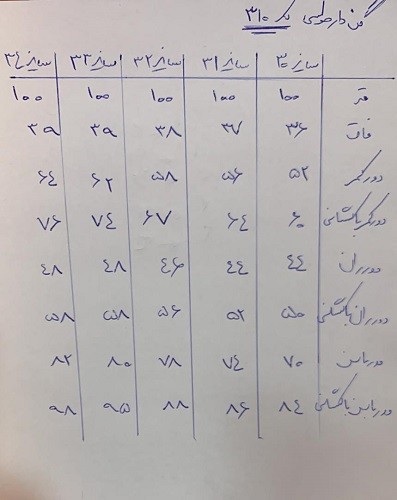 گن دار طوسی کد ۳۱۰
سایز ۳۰ سایز ۳۱ سایز ۳۲ سایز ۳۳ سایز ۳۴
قد ۱۰۰ ۱۰۰ ۱۰۰ ۱۰۰ ۱۰۰
فاق ۳۶ ۳۷ ۳۸ ۳۹ ۳۹
دور کمر ۵۲ ۵۶ ۵۸ ۶۲ ۶۴
دور کمر باکشسانی ۶۰ ۶۴ ۶۷ ۷۴ ۷۶
دور ران ۴۴ ۴۴ ۴۶ ۴۸ ۴۸
دور ران باکشسانی ۵۰ ۵۲ ۵۶ ۵۸ ۵۸
دور باسن ۷۰ ۷۴ ۷۸ ۸۰ ۸۲
دور باسن باکشسانی ۸۴ ۸۶ ۸۸ ۹۵ ۹۸